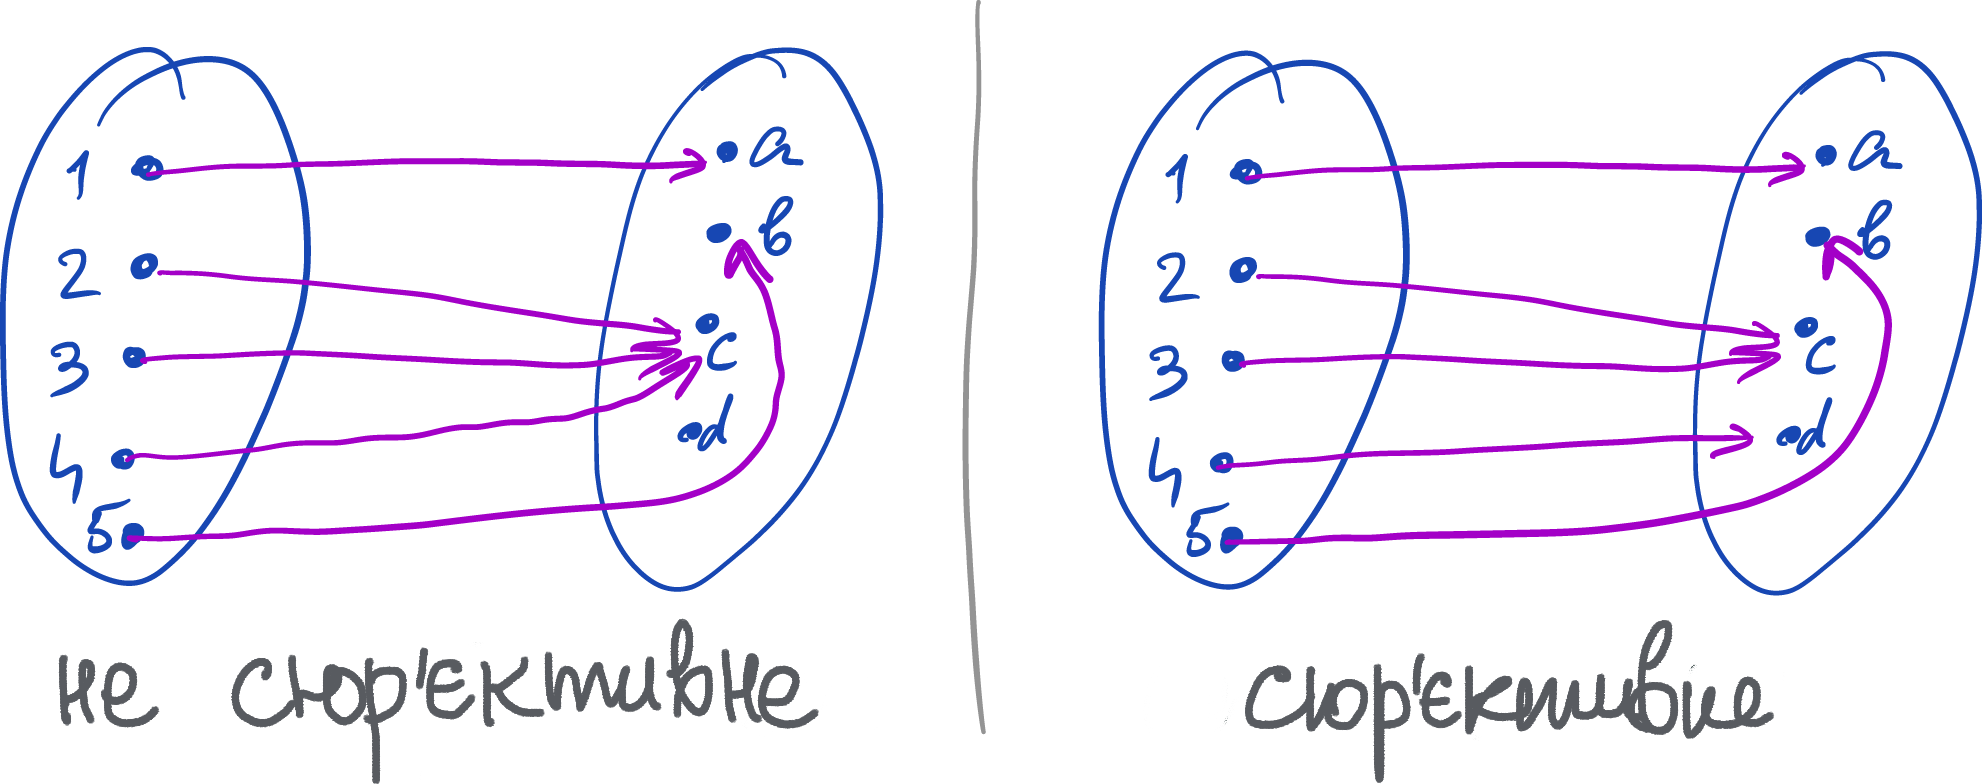 1
2
3
4
5
a
b
c
d
не сюр'єктивне
1
2
3
4
5
a
b
c
d
сюр'єктивне